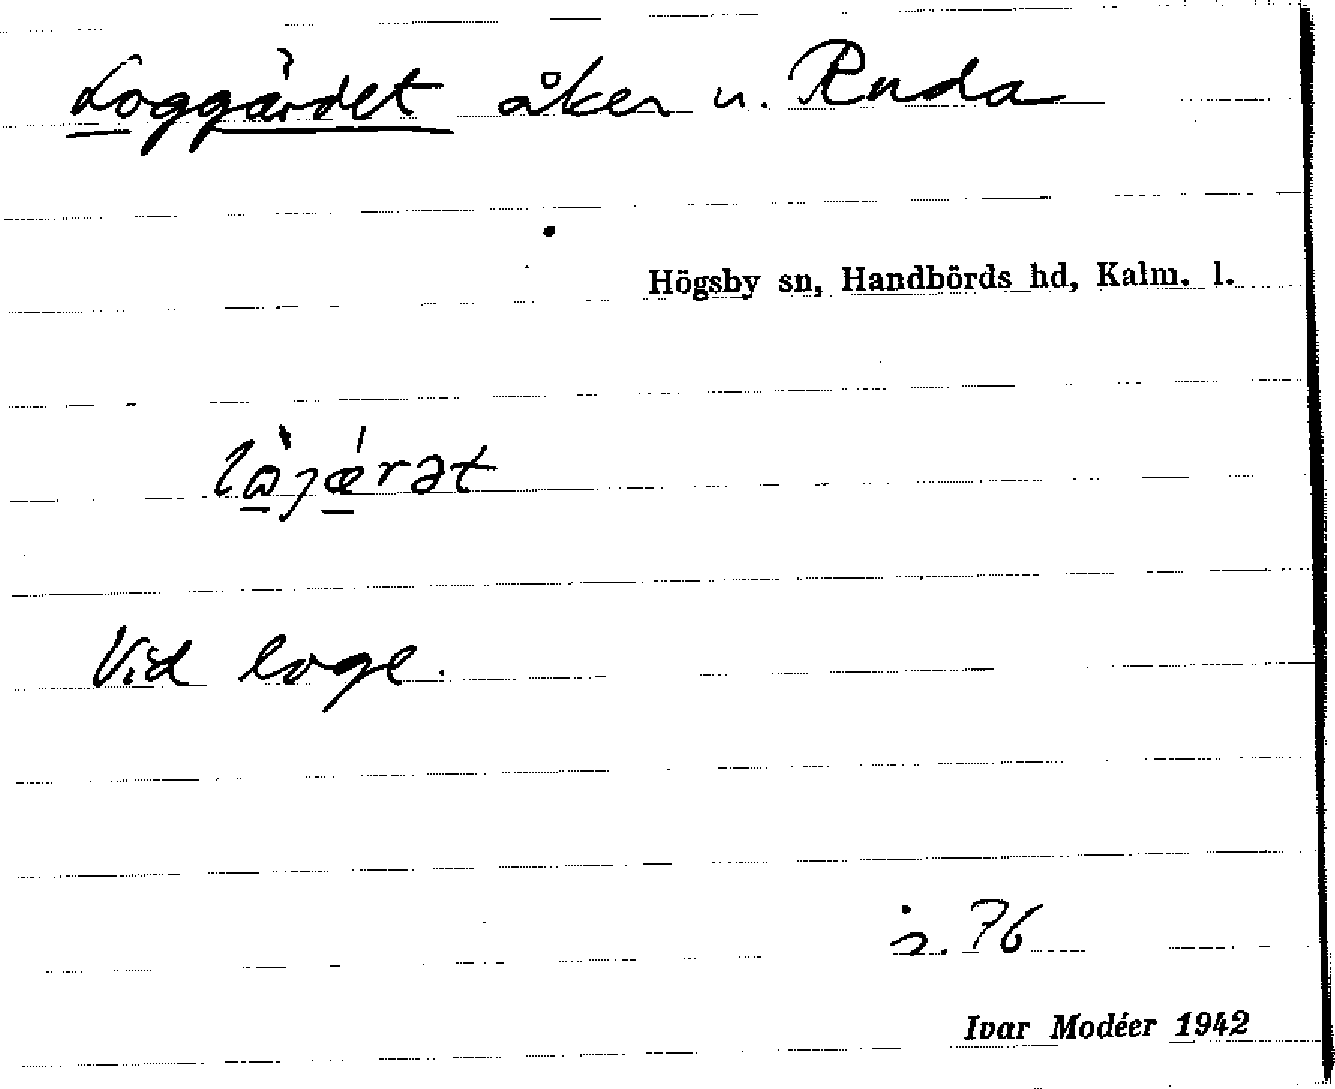 Loggärdet åker u. Ruda
Högsby sn, Handbörds hd, Kalm. l.
Vid loge.
s. 76
Ivar Modéer 1942